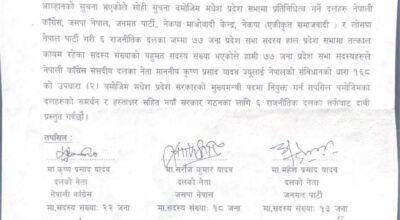 आव्हानको सुचना भएकोले सोही सुचना बमोजिम मधेश प्रदेश सभामा प्रतिनिधित्व गर्ने दलहरु नेपाली
काँग्रेस, जसपा नेपाल, जनमत पार्टी, नेकपा माओवादी केन्द्र, नेकपा (एकीकृत समाजवादी ) र लोसपा
नेपाल पार्टी गरी ६ राजनीतिक दलका जम्मा ७७ जना प्रदेश सभा सदस्य हाल प्रदेश सभामा तत्काल
कायम रहेका सदस्य संख्याको बहुमत सदस्य संख्या भएकोले हामी ७७ जना प्रदेश सभा सदस्यहरुले
नेपाली काँग्रेस संसदीय दलका नेता माननीय कृष्ण प्रसाद यादव ज्यूलाई नेपालको संविधानको धारा १६८
को उपधारा (२) बमोजिम मधेश प्रदेश सरकारको मुख्यमन्त्री पदमा नियुक्त गर्न तपसिल बमोजिमका
दलहरुको समर्थन र हस्ताक्षर सहित नयाँ सरकार गठनका लागि ६ राजनीतिक दलका तर्फबाट दावी
प्रस्तुत गर्दछौं।
तपसिल :
मा.कृष्ण प्रसाद यादव मा.सरोज कुमार यादव मा.महेश प्रसाद यादव
दलको नेता दलको नेता दलको नेता
नेपाली काँग्रेस जसपा नेपाल जनमत पार्टी
मा.सदस्य संख्या: २२ जना मा.सदस्य संख्या: १८ जना मा.सदस्य संख्या: १३ जना